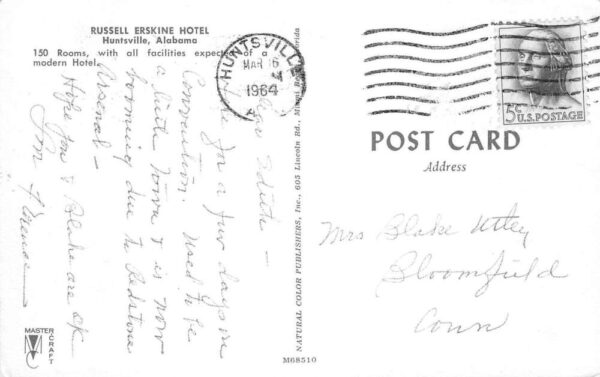 RUSSELL ERSKINE HOTEL
Huntsville, Alabama
150 Rooms, with all facilities expected of a
modern Hotel.
Edith —
for a few days on
Convention. Used to be
a little town & is now
booming due to Redstone
Arsenal —
Hope you & Blake are OK
Florence
MASTER
CRAFT
NATURAL COLOR PUBLISHERS, Inc., 605 Lincoln Rd., Miami Florida
M68510
HUNTSVILLE
MAR 16
1964
5¢ U.S. POSTAGE
POST CARD
Address
Mrs Blake Utley
Bloomfield
Conn